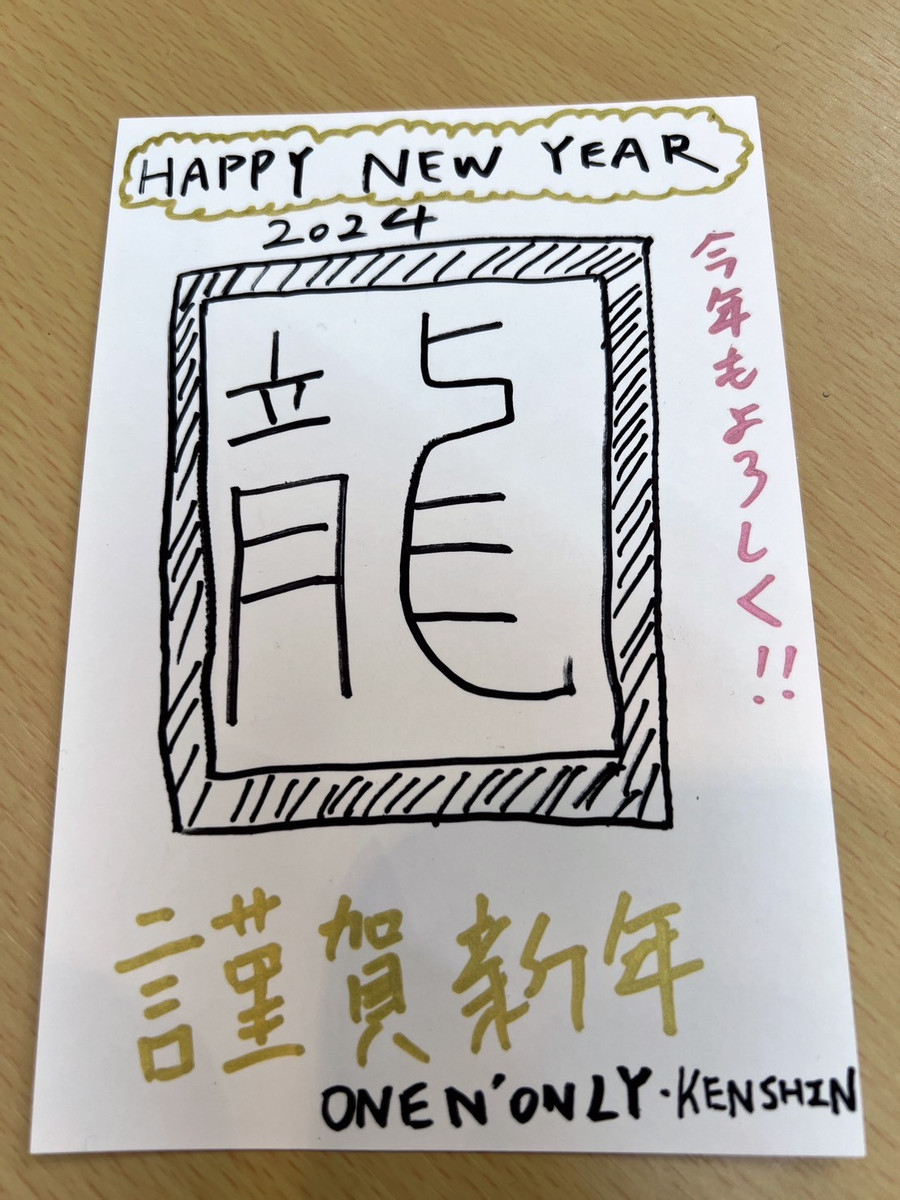 HAPPY NEW YEAR
2024
龍
今年もよろしく!!
謹賀新年
ONE N' ONLY・KENSHIN